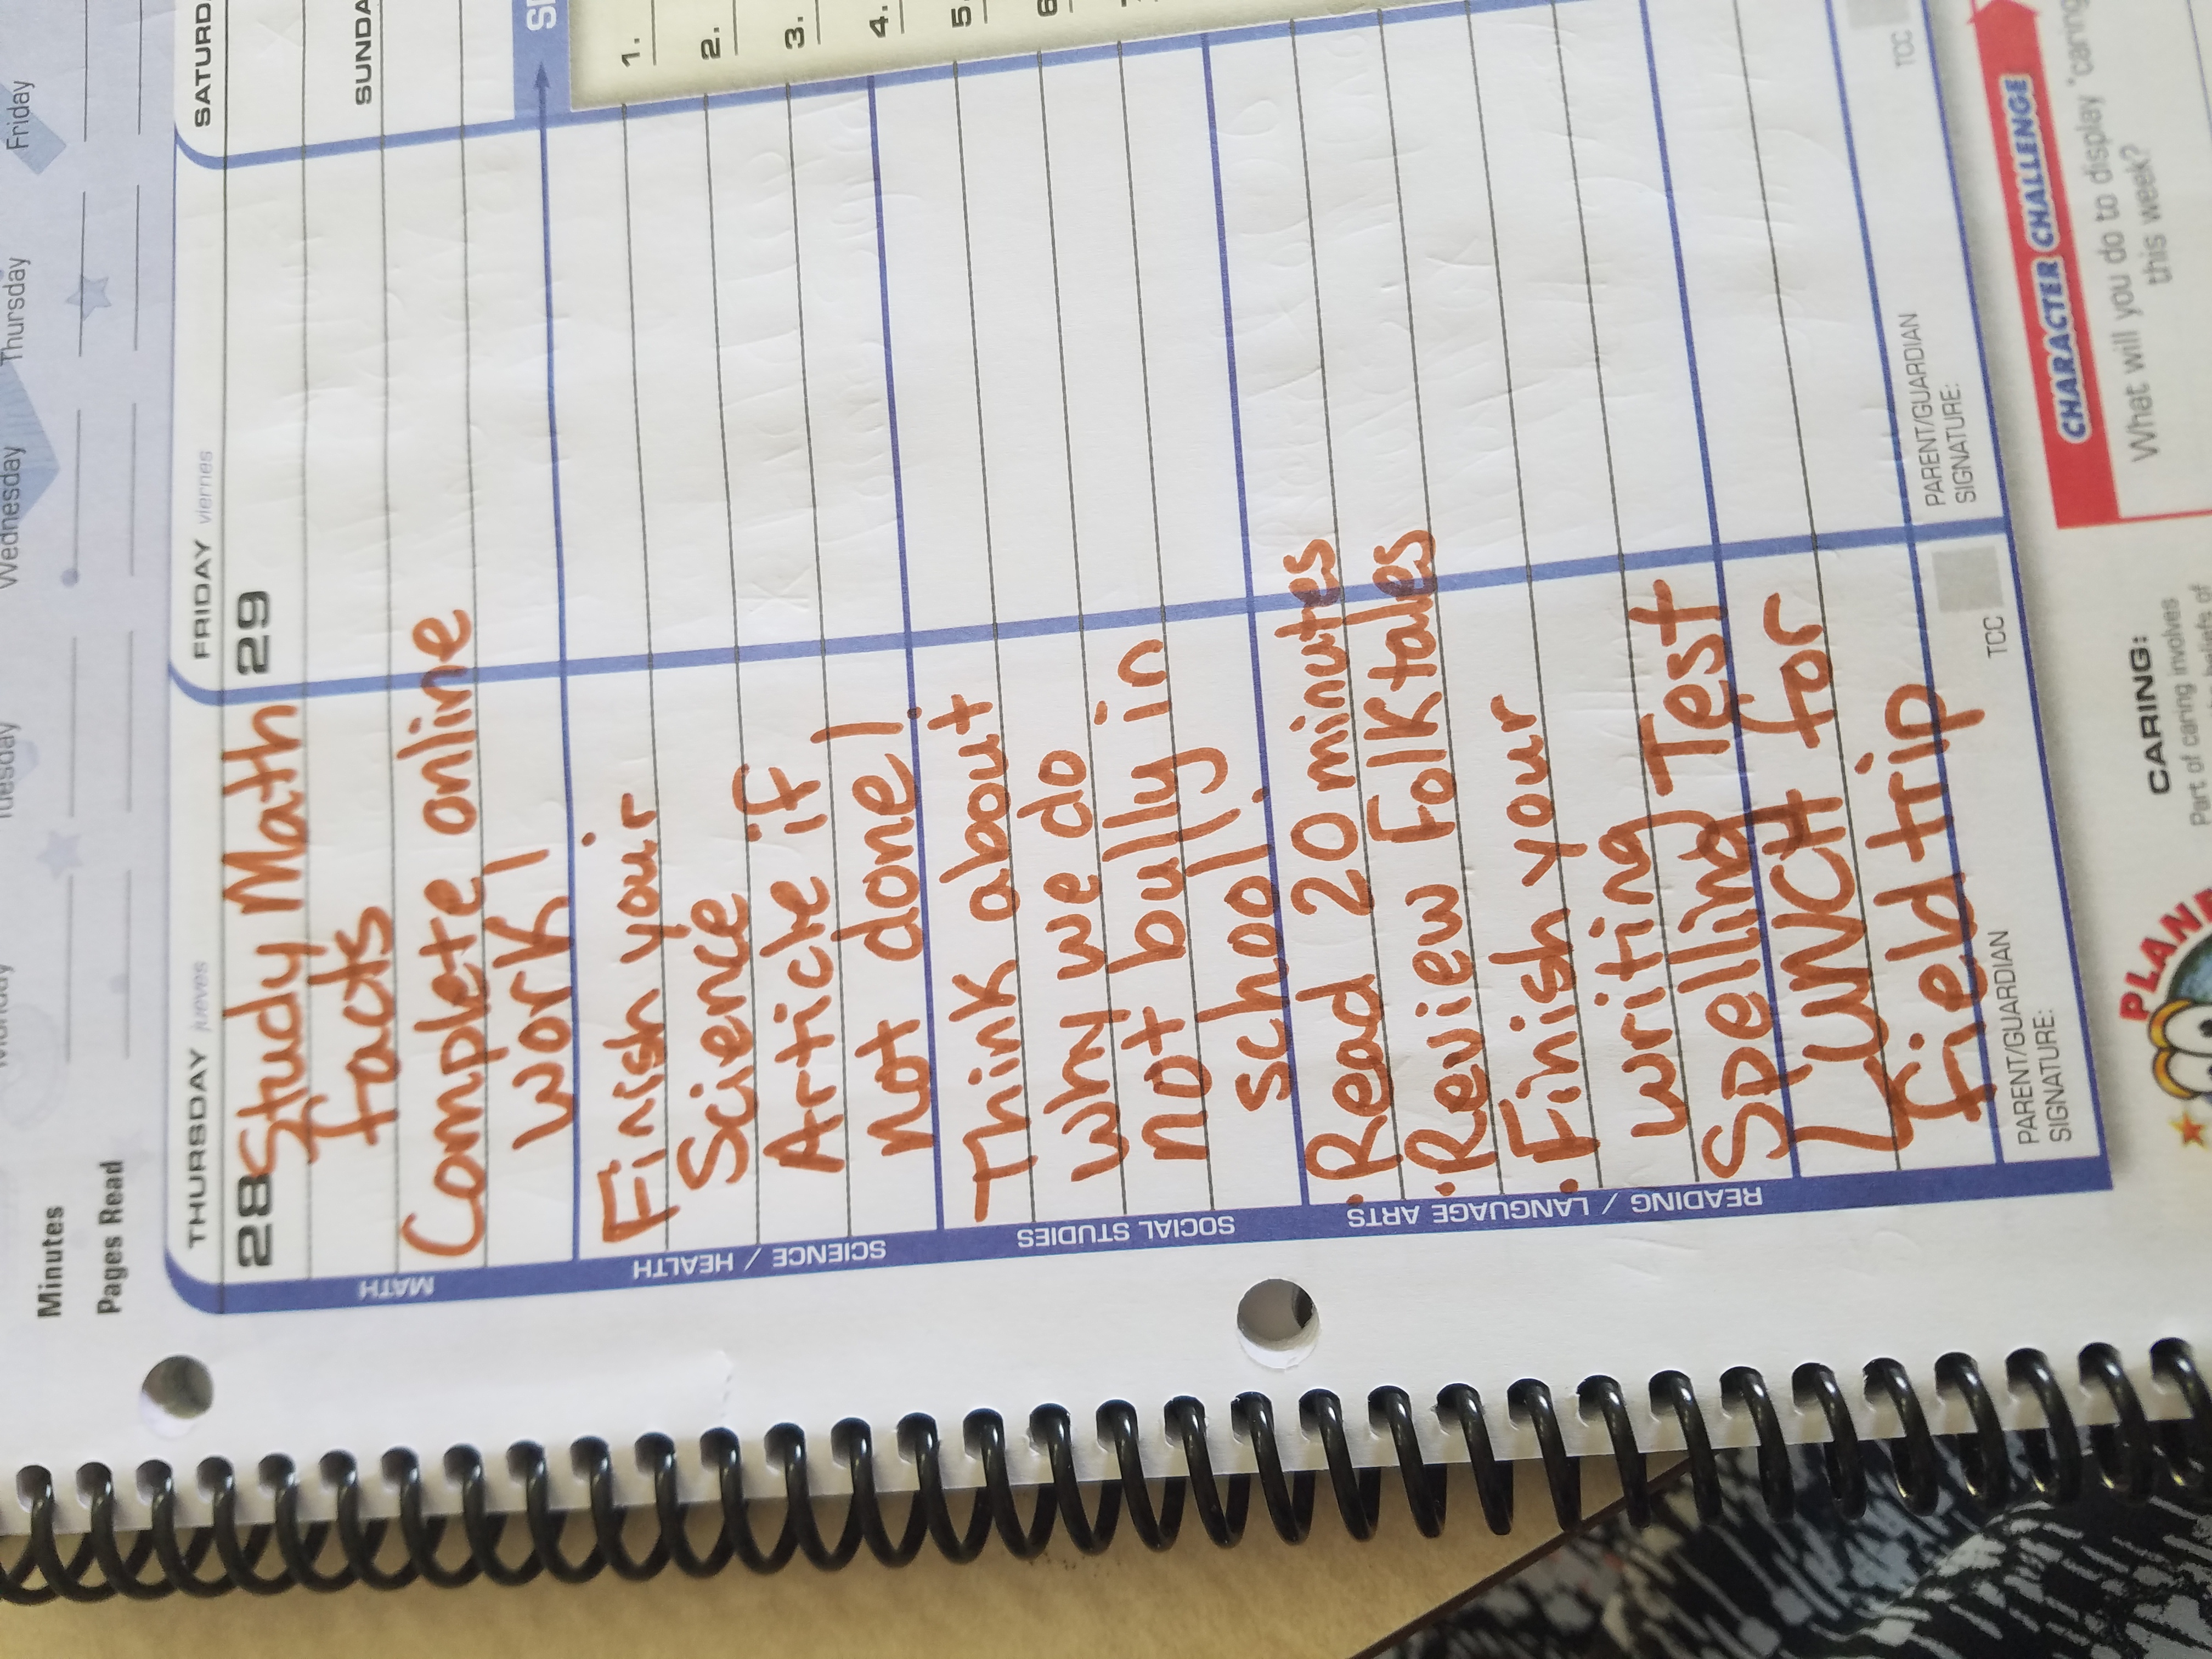 Friday
Thursday
Wednesday
Tuesday
Minutes
Pages Read
THURSDAY jueves
28
FRIDAY viernes
29
SATURD
SUNDA
MATH
Study Math
facts
Complete online
work!
SCIENCE / HEALTH
Finish your
Science
Article if
not done!
SOCIAL STUDIES
Think about
why we do
not bully in
school.
READING / LANGUAGE ARTS
• Read 20 minutes
• Review Folktales
• Finish your
writing
Spelling Test
LUNCH for
field trip
PARENT/GUARDIAN
SIGNATURE:
TCC
PARENT/GUARDIAN
SIGNATURE:
TCC
1.
2.
3.
4.
5.
6
CHARACTER CHALLENGE
What will you do to display "caring
this week?
CARING:
Part of caring involves
PLAN